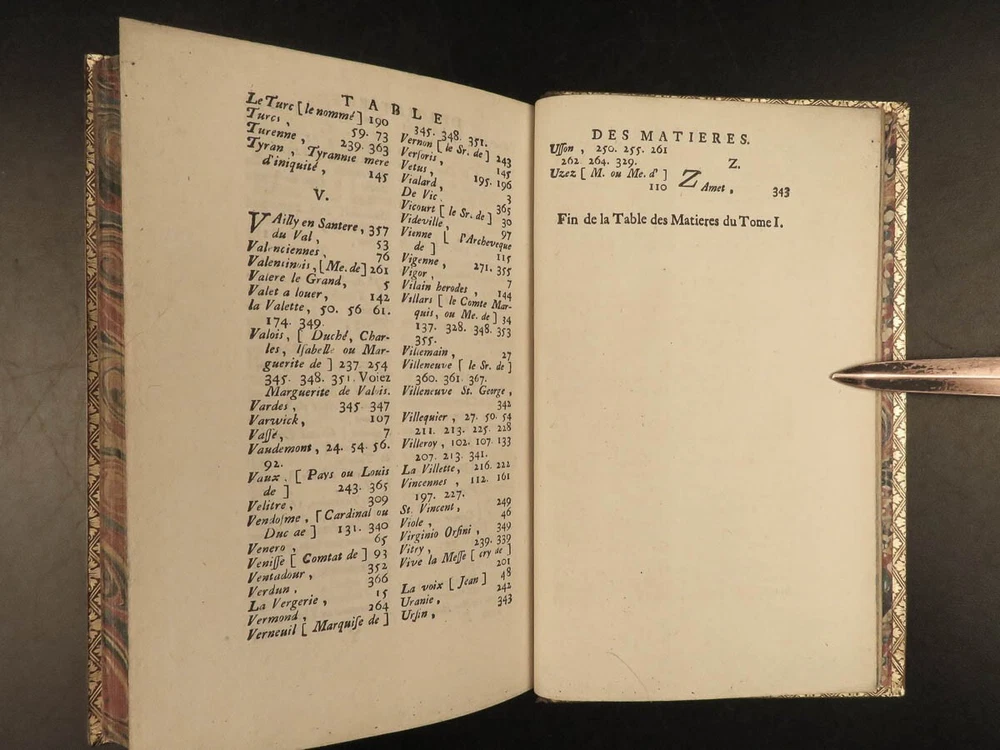 TABLE
Le Turc [ le nommé ] 190
Turci, 59. 73
Turenne, 239. 363
Tyran, Tyrannie mere
d'iniquité, 145
V.
VAilly en Santere, 357
du Val, 53
Valenciennes, 76
Valentinois, [ Me. de ] 261
Valere le Grand, 5
Valet a louer, 142
la Valette, 50. 56 61.
174. 349.
Valois, [ Duché, Char-
les, Isabelle ou Mar-
guerite de ] 237 254
345. 348. 351. Voiez
Marguerite de Valois.
Vardes, 345 347
Varwick, 107
Vassé, 7
Vaudemont, 24. 54. 56.
92.
Vaux. [ Pays ou Louis
de ] 243. 365
Velitre, 309
Vendosme, [ Cardinal ou
Duc de ] 131. 340
Venero, 65
Venisse [ Comtat de ] 93
Ventadour, 352
Verdun, 366
La Vergerie, 15
Vermond, 264
Verneuil [ Marquise de ]
345. 348. 351.
Vernon [ le Sr. de ] 243
Versoris, 145
Vetus, 195. 196
Vialard, 3
De Vic 365
Vicourt [ le Sr. de ] 30
Videville, 97
Vienne [ l'Archeveque
de ] 115
Vigenne, 271. 355
Vigor, 7
Vilain herodes, 144
Villars [ le Comte Mar-
quis, ou Me. de ] 34
137. 328. 348. 353
355.
Villemain, 27
Villeneuve [ le Sr. de ]
360. 361. 367.
Villeneuve St. George,
342
Villequier, 27. 50. 54
211. 213. 225. 228
Villeroy, 102. 107. 133
207. 213. 341.
La Villette, 216. 222
Vincennes, 112. 161
197. 227.
St. Vincent, 249
Viole, 46
Virginio Orsini, 349
Vitry, 239. 339
Vive la Messe [ cry de ]
201
La voix [ Jean ] 48
Uranie, 242
Ursin, 343
DES MATIERES.
Usson, 250. 255. 261
262. 264. 329.
Uzez [ M. ou Me. d' ]
110
Z.
ZAmet, 343
Fin de la Table des Matieres du Tome I.